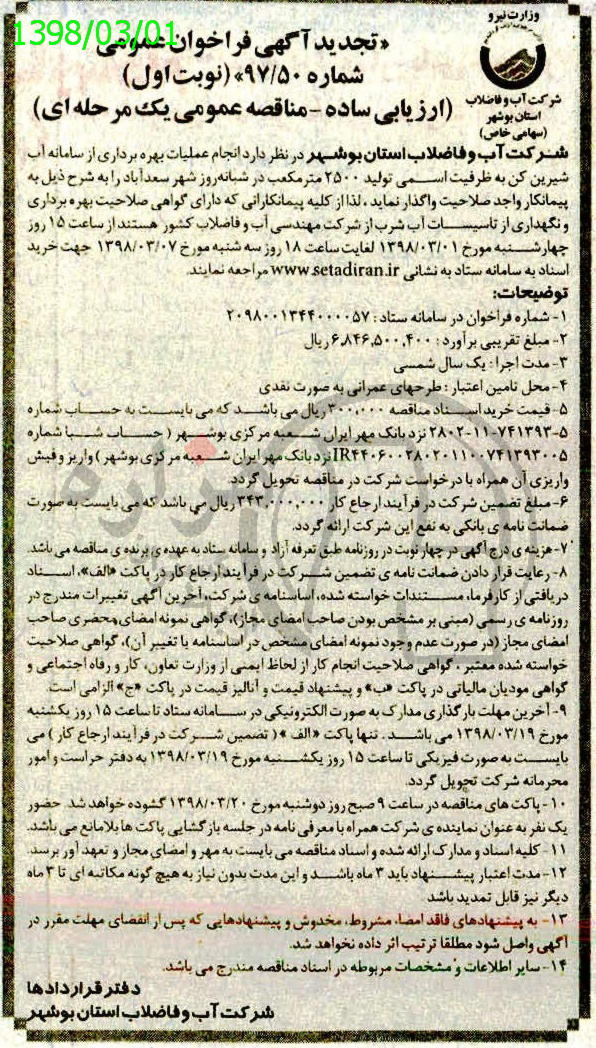 1398/03/01
وزارت نیرو
«تجدید آگهی فراخوان عمومی
شماره ۹۷/۵۰» (نوبت اول)
(ارزیابی ساده - مناقصه عمومی یک مرحله ای)
شرکت آب و فاضلاب
استان بوشهر
(سهامی خاص)
شرکت آب و فاضلاب استان بوشهر در نظر دارد انجام عملیات بهره برداری از سامانه آب
شیرین کن به ظرفیت اسمی تولید ۲۵۰۰ مترمکعب در شبانه‌روز شهر سعدآباد را به شرح ذیل به
پیمانکار واجد صلاحیت واگذار نماید ، لذا از کلیه پیمانکارانی که دارای گواهی صلاحیت بهره برداری
و نگهداری از تاسیسات آب شرب از شرکت مهندسی آب و فاضلاب کشور هستند از ساعت ۱۵ روز
چهارشنبه مورخ ۱۳۹۸/۰۳/۰۱ لغایت ساعت ۱۸ روز سه شنبه مورخ ۱۳۹۸/۰۳/۰۷ جهت خرید
اسناد به سامانه ستاد به نشانی www.setadiran.ir مراجعه نمایند.
توضیحات:
۱- شماره فراخوان در سامانه ستاد : ۲۰۹۸۰۰۱۳۴۴۰۰۰۰۵۷
۲- مبلغ تقریبی برآورد : ۶,۸۴۶,۵۰۰,۴۰۰ ریال
۳- مدت اجرا : یک سال شمسی
۴- محل تامین اعتبار : طرحهای عمرانی به صورت نقدی
۵- قیمت خرید اسناد مناقصه ۳۰۰,۰۰۰ ریال می باشد که می بایست به حساب شماره
۵-۷۴۱۳۹۳-۱۱-۲۸۰۲ نزد بانک مهر ایران شعبه مرکزی بوشهر ( حساب شبا شماره
IR۴۴۰۶۰۰۲۸۰۲۰۱۱۰۰۷۴۱۳۹۳۰۰۵ نزد بانک مهر ایران شعبه مرکزی بوشهر ) واریز و فیش
واریزی آن همراه با درخواست شرکت در مناقصه تحویل گردد.
۶- مبلغ تضمین شرکت در فرآیند ارجاع کار ۳۴۳,۰۰۰,۰۰۰ ریال می باشد که می بایست به صورت
ضمانت نامه ی بانکی به نفع این شرکت ارائه گردد.
۷- هزینه ی درج آگهی در چهار نوبت در روزنامه طبق تعرفه آزاد و سامانه ستاد به عهده ی برنده ی مناقصه می باشد.
۸- رعایت قرار دادن ضمانت نامه ی تضمین شرکت در فرآیند ارجاع کار در پاکت «الف»، اسناد
دریافتی از کارفرما، مستندات خواسته شده، اساسنامه ی شرکت، آخرین آگهی تغییرات مندرج در
روزنامه ی رسمی (مبنی بر مشخص بودن صاحب امضای مجاز)، گواهی نمونه امضای محضری صاحب
امضای مجاز (در صورت عدم وجود نمونه امضای مشخص در اساسنامه یا تغییر آن)، گواهی صلاحیت
خواسته شده معتبر ، گواهی صلاحیت انجام کار از لحاظ ایمنی از وزارت تعاون، کار و رفاه اجتماعی و
گواهی مودیان مالیاتی در پاکت «ب» و پیشنهاد قیمت و آنالیز قیمت در پاکت «ج» الزامی است.
۹- آخرین مهلت بارگذاری مدارک به صورت الکترونیکی در سامانه ستاد تا ساعت ۱۵ روز یکشنبه
مورخ ۱۳۹۸/۰۳/۱۹ می باشد . تنها پاکت « الف » ( تضمین شرکت در فرآیند ارجاع کار ) می
بایست به صورت فیزیکی تا ساعت ۱۵ روز یکشنبه مورخ ۱۳۹۸/۰۳/۱۹ به دفتر حراست و امور
محرمانه شرکت تحویل گردد.
۱۰- پاکت های مناقصه در ساعت ۹ صبح روز دوشنبه مورخ ۱۳۹۸/۰۳/۲۰ گشوده خواهد شد. حضور
یک نفر به عنوان نماینده ی شرکت همراه با معرفی نامه در جلسه بازگشایی پاکت ها بلامانع می باشد.
۱۱- کلیه اسناد و مدارک ارائه شده و اسناد مناقصه می بایست به مهر و امضای مجاز و تعهد آور برسد.
۱۲- مدت اعتبار پیشنهاد باید ۳ ماه باشد و این مدت بدون نیاز به هیچ گونه مکاتبه ای تا ۳ ماه
دیگر نیز قابل تمدید باشد
۱۳- به پیشنهادهای فاقد امضا، مشروط، مخدوش و پیشنهادهایی که پس از انقضای مهلت مقرر در
آگهی واصل شود مطلقا ترتیب اثر داده نخواهد شد.
۱۴- سایر اطلاعات و مشخصات مربوطه در اسناد مناقصه مندرج می باشد.
دفتر قراردادها
شرکت آب و فاضلاب استان بوشهر